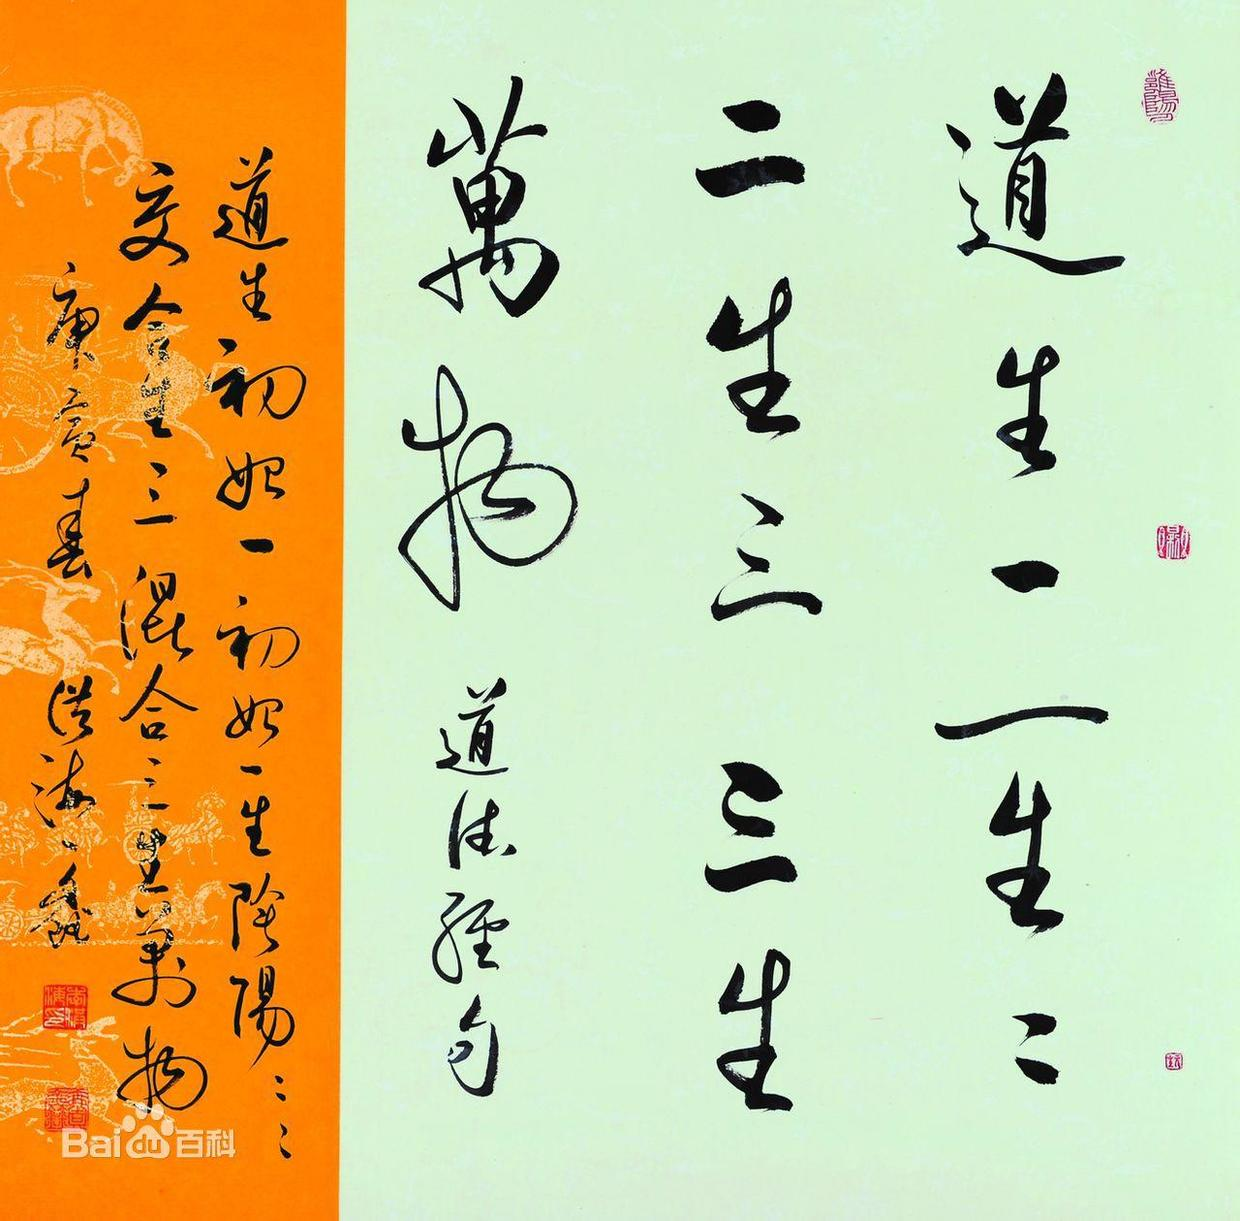 道生一一生二
二生三三生
萬物 道德經句
道生初始一初始一生陰陽二二
交合生三混合三生萬物
庚寅春
Bai du 百科